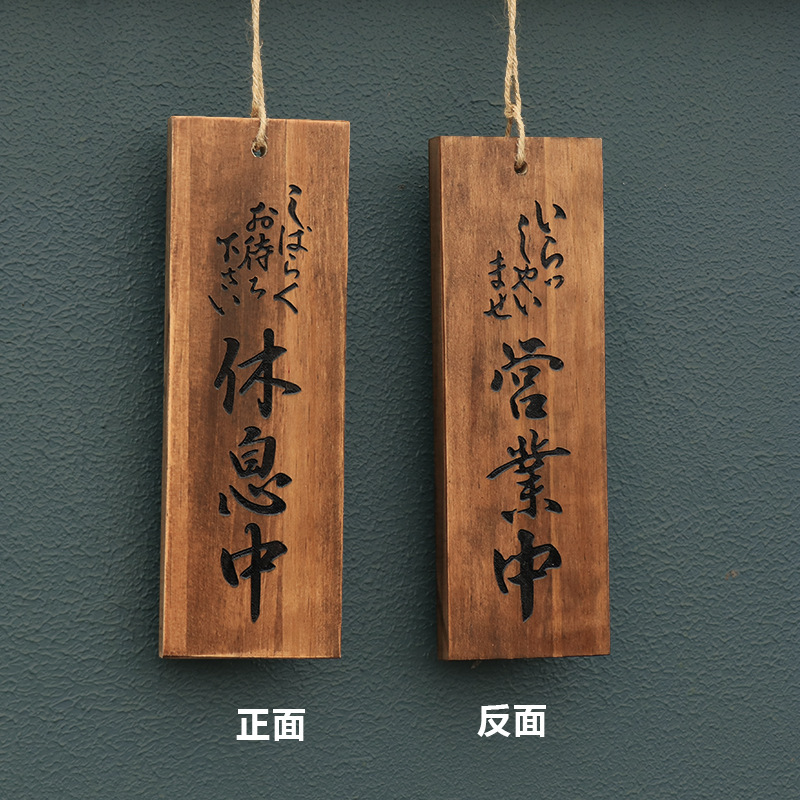 しばらく
お待ち
下さい
休息中
正面
いらっ
しゃい
ませ
営業中
反面